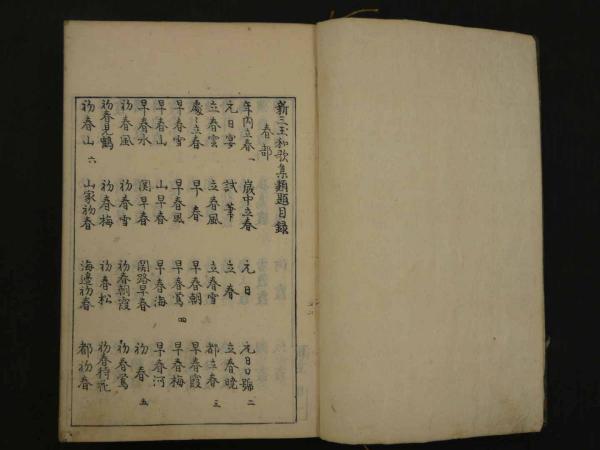 新三玉和歌集類題目録
春部
年内立春一 歳中立春 元日 元日口號二
元日宴 試筆 立春 立春暁
立春雲 立春風 立春雪 都立春三
處々立春 早春 早春朝 早春霞
早春雪 早春風 早春鶯四 早春梅
早春山 山早春 早春海 早春河
早春氷 関早春 関路早春 初春五
初春風 初春雪 初春朝霞 初春鶯
初春見鶴 初春梅 初春松 初春待花
初春山六 山家初春 海邊初春 都初春